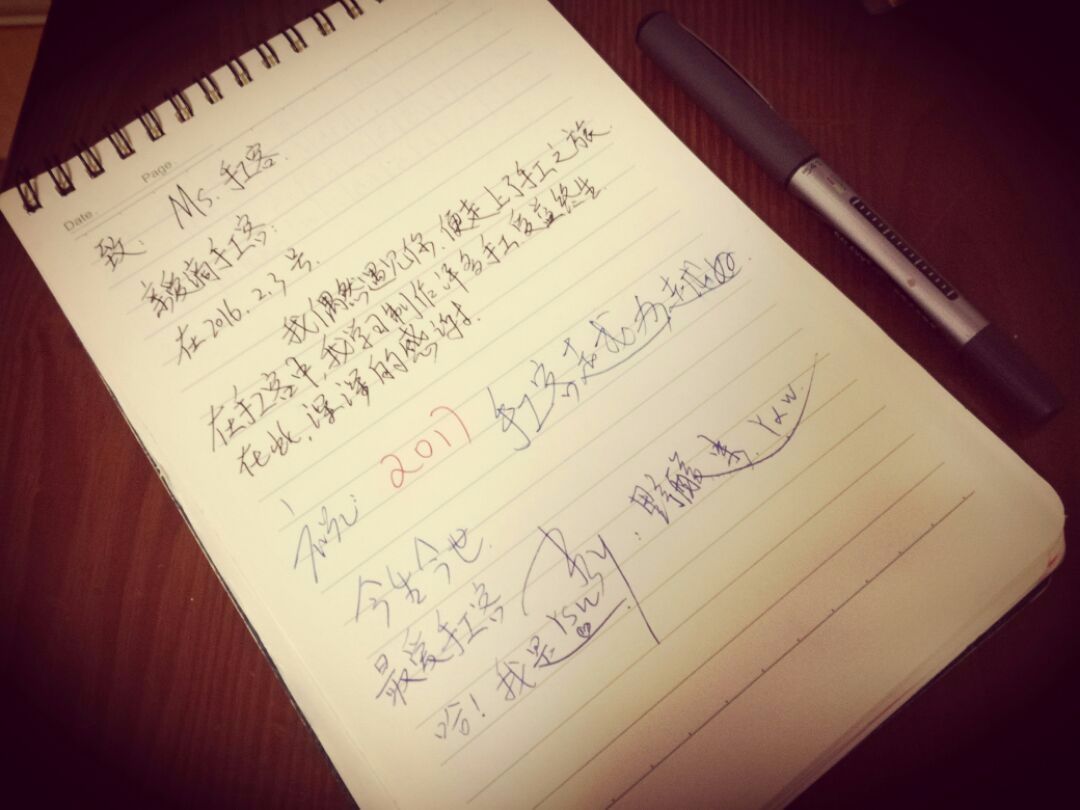 Page.
Date.
致：Ms. 手工客.
亲爱滴手工客：
在2016.2.3号.
我偶然遇见你，便走上了手工之旅.
在手工客中，我学习制作许多手工，受益终生
在此，深深的感谢.
2017 手工客越办越好.
今生今世.
最爱手工客
哈！我是ysw
野酸枣. Yxw.